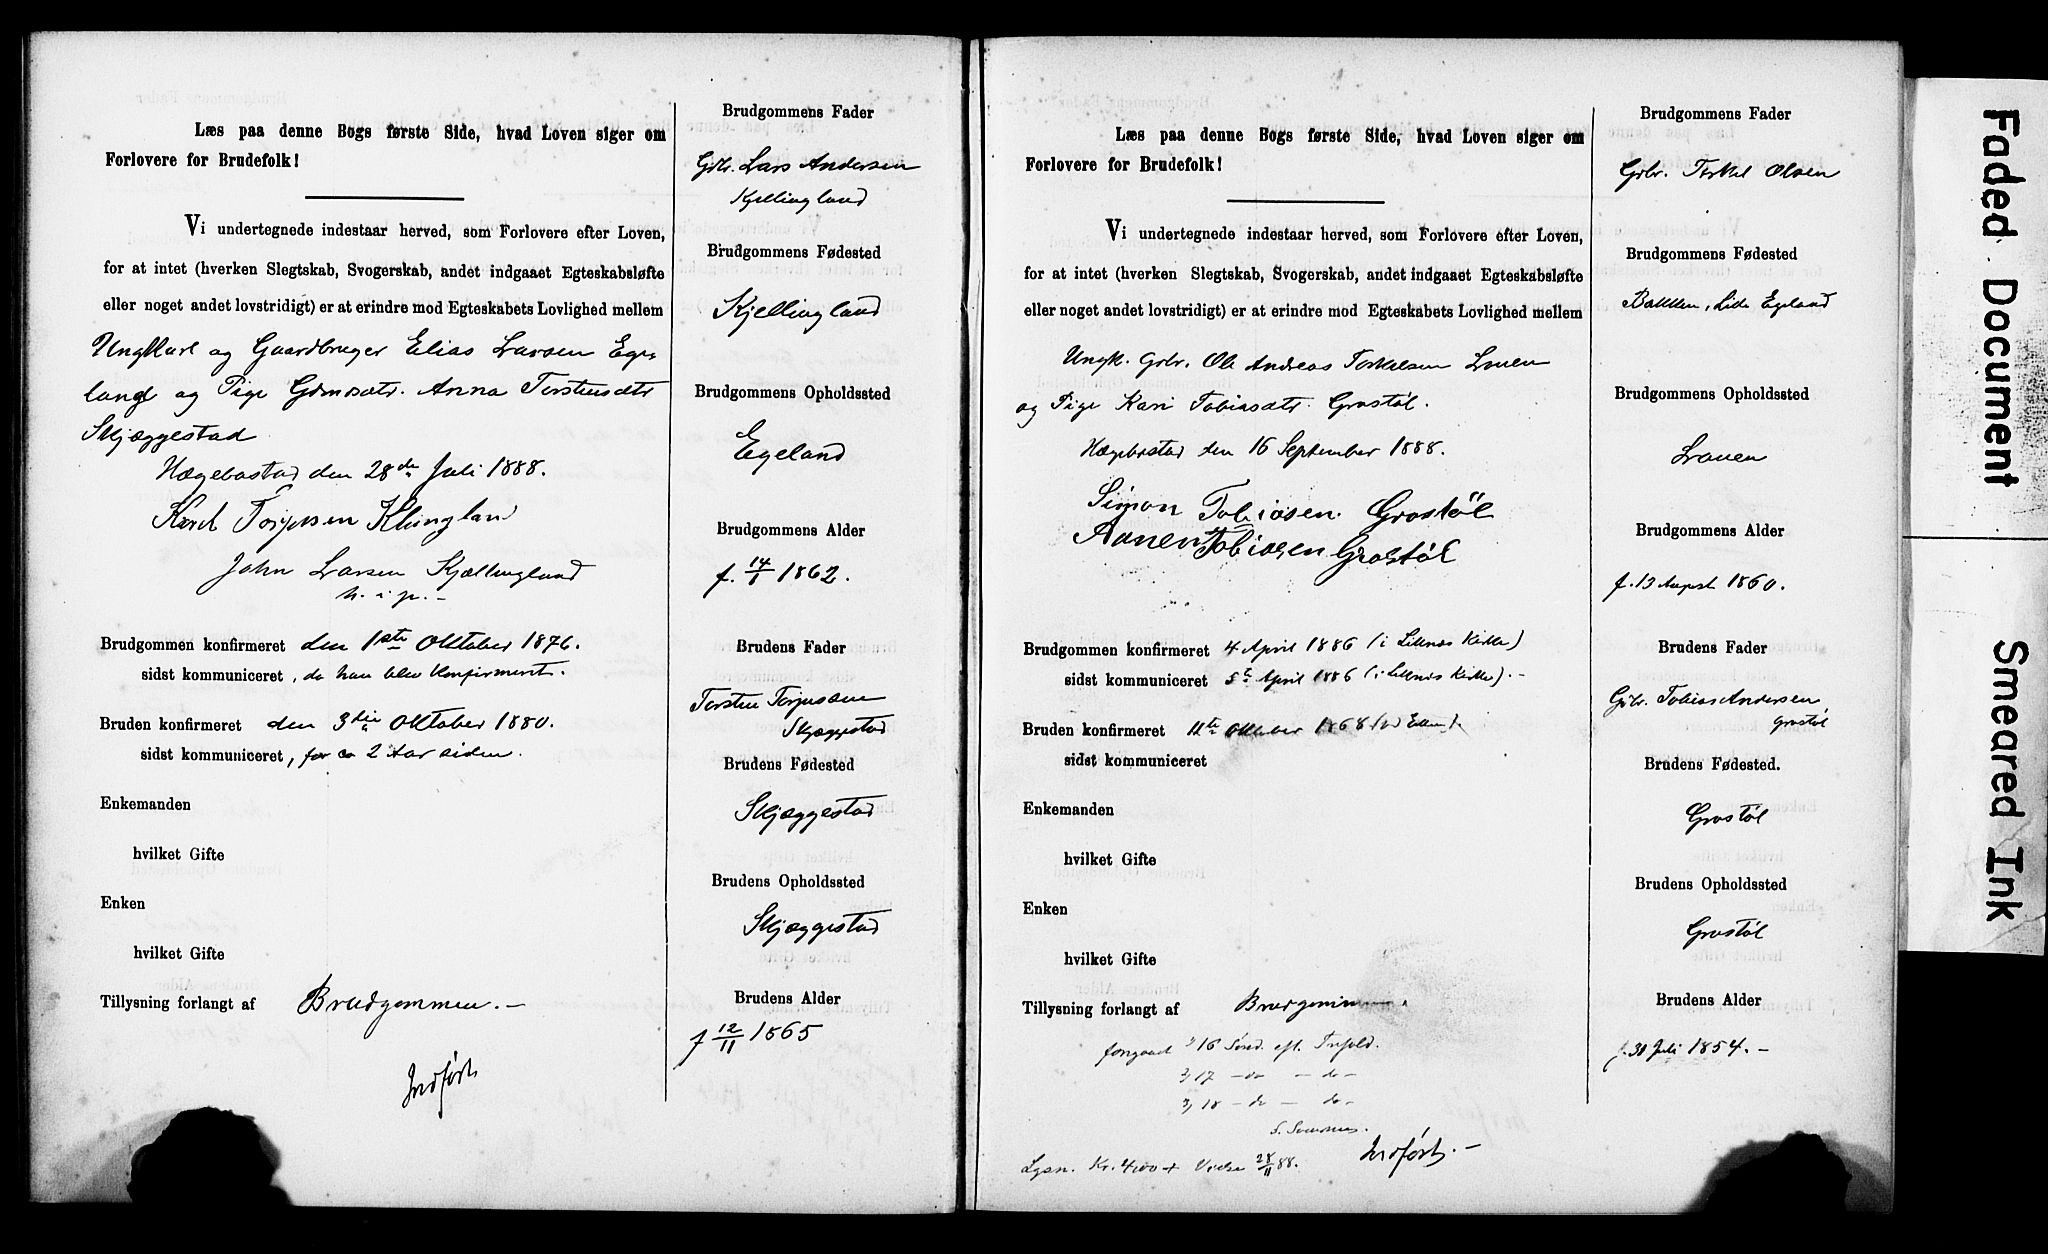 Læs paa denne Bogs første Side, hvad Loven siger om
Forlovere for Brudefolk!
Vi undertegnede indestaar herved, som Forlovere efter Loven,
for at intet (hverken Slegtskab, Svogerskab, andet indgaaet Egteskabsløfte
eller noget andet lovstridigt) er at erindre mod Egteskabets Lovlighed mellem
Ungkarl og Gaardbruger Elias Larsen Ege-
land og Pige Grdmsdtr. Anna Torstensdtr
Skjæggestad
Hægebostad den 28de Juli 1888.
Torjusen Klungland
John Larsen Kjællingland
m. i p. -
Brudgommen konfirmeret den 1ste Oktober 1876.
sidst kommuniceret, da han blev konfirmeret.
Bruden konfirmeret den 3die Oktober 1880.
sidst kommuniceret, for ca 2 Aar siden.
Enkemanden
hvilket Gifte
Enken
hvilket Gifte
Tillysning forlangt af Brudgommen. -
Indført
Brudgommens Fader
Gbr. Lars Andersen
Kjellingland
Brudgommens Fødested
Kjellingland
Brudgommens Opholdssted
Egeland
Brudgommens Alder
f. 14/1 1862.
Brudens Fader
Torsten Torjusen
Skjæggestad
Brudens Fødested
Skjæggestad
Brudens Opholdssted
Skjæggestad
Brudens Alder
f 12/11 1865
Læs paa denne Bogs første Side, hvad Loven siger om
Forlovere for Brudefolk!
Vi undertegnede indestaar herved, som Forlovere efter Loven,
for at intet (hverken Slegtskab, Svogerskab, andet indgaaet Egteskabsløfte
eller noget andet lovstridigt) er at erindre mod Egteskabets Lovlighed mellem
Ungk. Gbr. Ole Andreas Torkelsen Lauen
og Pige Kari Tobiasdtr. Grostøl.
Hægebostad den 16 September 1888.
Simon Tobiasen Grostøl
Tobiasen Grostøl
Brudgommen konfirmeret 4 April 1886 (i Kirke)
sidst kommuniceret 5te April 1886 (i Kirke). -
Bruden konfirmeret 11te Oktober 1868
sidst kommuniceret
Enkemanden
hvilket Gifte
Enken
hvilket Gifte
Tillysning forlangt af Brudgommen.
16 Sønd. eft. Trefold.
17 - do - do -
18 - do - do -
Lysn. Kr. 4,00 + Vielse 28/11 88.
Indført. -
Brudgommens Fader
Gbr. Torkel Olsen
Brudgommens Fødested
Bakken, Lide Egeland
Brudgommens Opholdssted
Lauen
Brudgommens Alder
f. 13 August 1860.
Brudens Fader
Gbr. Tobias Andersen
Grostøl
Brudens Fødested.
Grostøl
Brudens Opholdssted
Grostøl
Brudens Alder
f. 30 Juli 1854. -
Faded Document
Smeared Ink